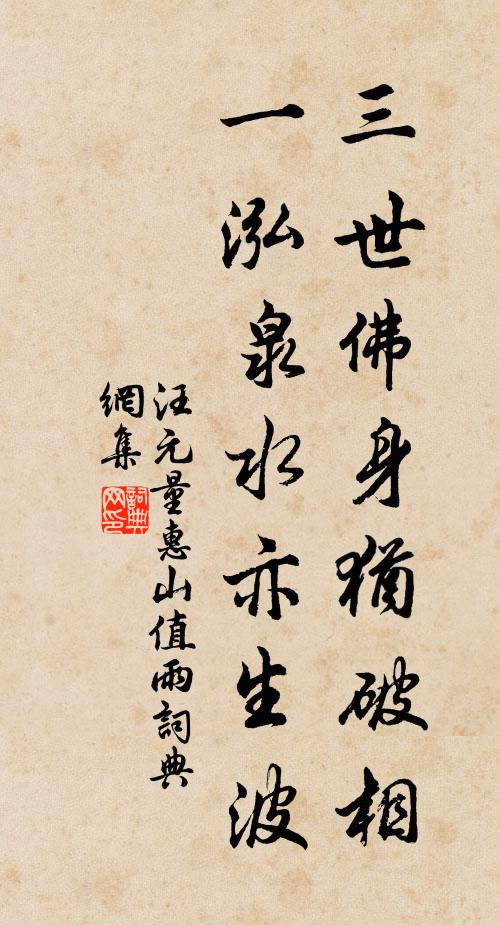 三世佛身猶破相
一泓泉水亦生波
汪元量惠山值雨詞典
網集
詞典
网印